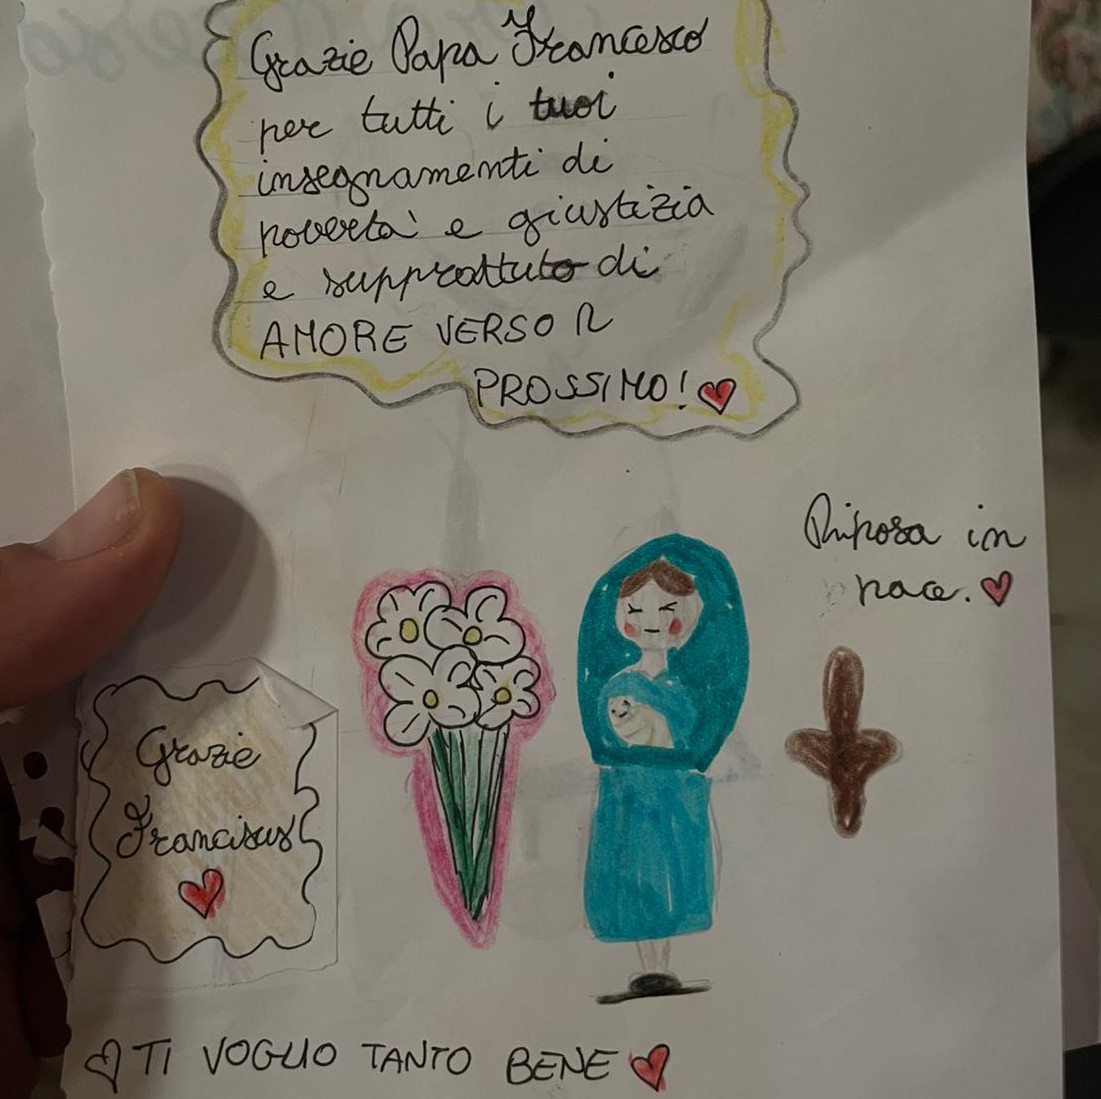 Grazie Papa Francesco
per tutti i tuoi
insegnamenti di
povertà e giustizia
e supprattuto di
AMORE VERSO IL
PROSSIMO!
Riposa in
pace.
Grazie
Franciscus
TI VOGLIO TANTO BENE